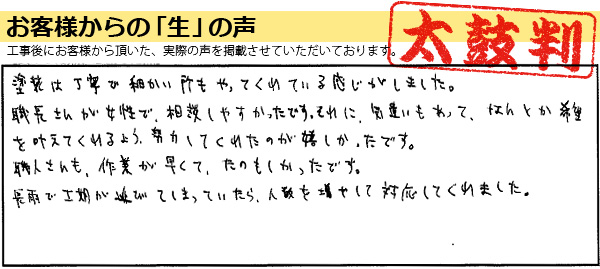 お客様からの「生」の声
工事後にお客様から頂いた、実際の声を掲載させていただいております。
太鼓判
塗装は丁寧で細かい所もやってくれている感じがしました。
職長さんが女性で、相談しやすかったです。それに、気遣いもあって、なんとか希望
を叶えてくれるよう、努力してくれたのが嬉しかったです。
職人さんも、作業が早くて、たのもしかったです。
長雨で工期が延びてしまっていたら、人数を増やして対応してくれました。